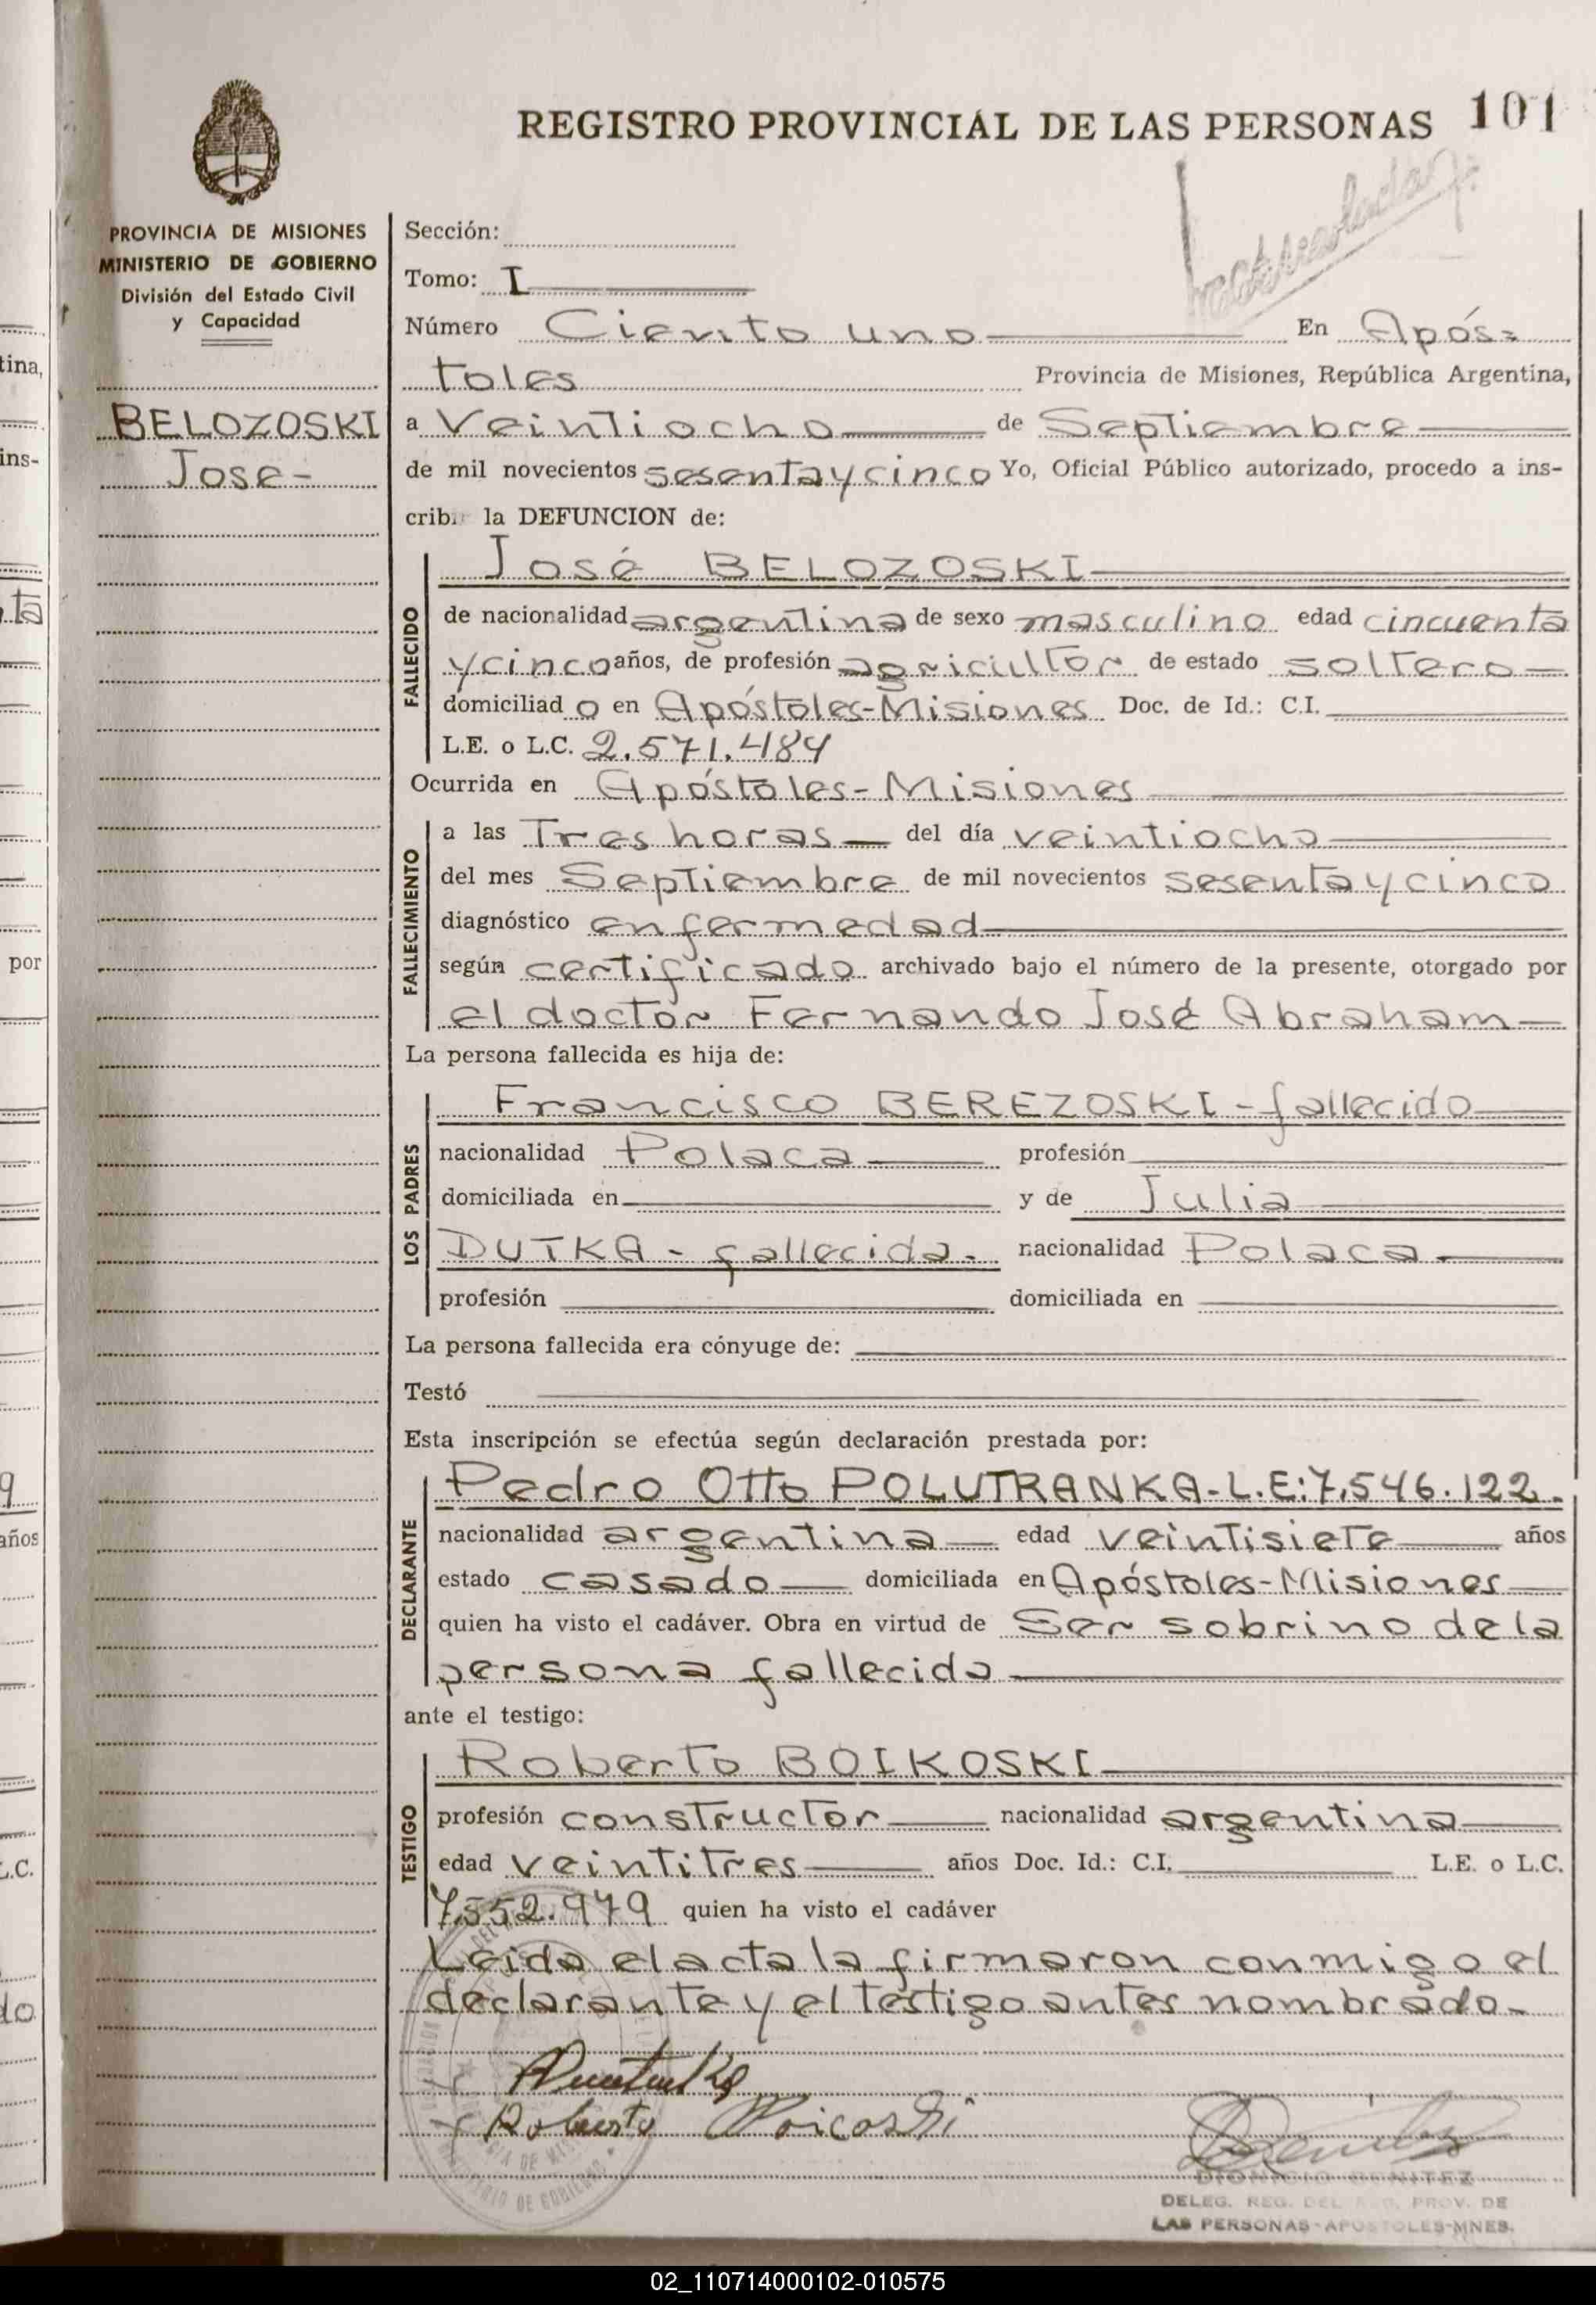 REGISTRO PROVINCIAL DE LAS PERSONAS 101
PROVINCIA DE MISIONES
MINISTERIO DE GOBIERNO
División del Estado Civil
y Capacidad
BELOZOSKI
Jose-
Sección:
Tomo: I
Número Ciento uno En Após=
toles Provincia de Misiones, República Argentina,
a Veintiocho de Septiembre
de mil novecientos sesentaycinco Yo, Oficial Público autorizado, procedo a ins-
cribir la DEFUNCION de:
José BELOZOSKI
FALLECIDO
de nacionalidad argentina de sexo masculino edad cincuenta
ycinco años, de profesión agricultor de estado soltero
domiciliado en Apóstoles-Misiones Doc. de Id.: C.I.
L.E. o L.C. 2.571.484
Ocurrida en Apóstoles-Misiones
FALLECIMIENTO
a las Tres horas del día veintiocho
del mes Septiembre de mil novecientos sesentaycinco
diagnóstico enfermedad
según certificado archivado bajo el número de la presente, otorgado por
el doctor Fernando José Abraham
La persona fallecida es hija de:
LOS PADRES
Francisco BEREZOSKI-fallecido
nacionalidad Polaca profesión
domiciliada en y de Julia
DUTKA - fallecida.- nacionalidad Polaca
profesión domiciliada en
La persona fallecida era cónyuge de:
Testó
Esta inscripción se efectúa según declaración prestada por:
DECLARANTE
Pedro Otto POLUTRANKA-L.E:7.546.122.
nacionalidad argentina edad veintisiete años
estado casado domiciliada en Apóstoles-Misiones
quien ha visto el cadáver. Obra en virtud de Ser sobrino de la
persona fallecida
ante el testigo:
TESTIGO
Roberto BOIKOSKI
profesión constructor nacionalidad argentina
edad veintitres años Doc. Id.: C.I. L.E. o L.C.
7.552.979 quien ha visto el cadáver
Leida el acta la firmaron conmigo el
declarante y el testigo antes nombrado.-
Roberto
DIONICIO BENITEZ
DELEG. REG. DEL PROV. DE
LAS PERSONAS-APOSTOLES-MNES.
tina,
ins-
ta
por
9
años
L.C.
do
02_110714000102-010575